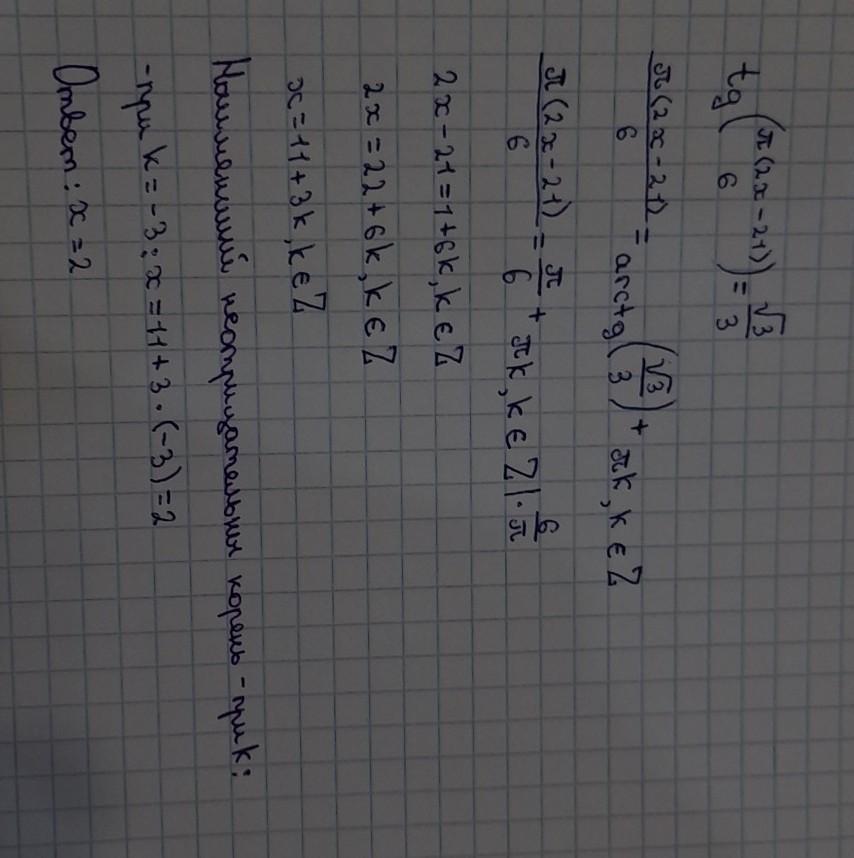 tg(π(2x-21)/6) = √3/3
π(2x-21)/6 = arctg(√3/3) + πk, k ∈ Z
π(2x-21)/6 = π/6 + πk, k ∈ Z | · 6/π
2x-21=1+6k, k ∈ Z
2x = 22+6k, k ∈ Z
x = 11+3k, k ∈ Z
Наименший неотрицательны корень - при k:
-при k = -3: x = 11+3·(-3) = 2
Ответ: x = 2